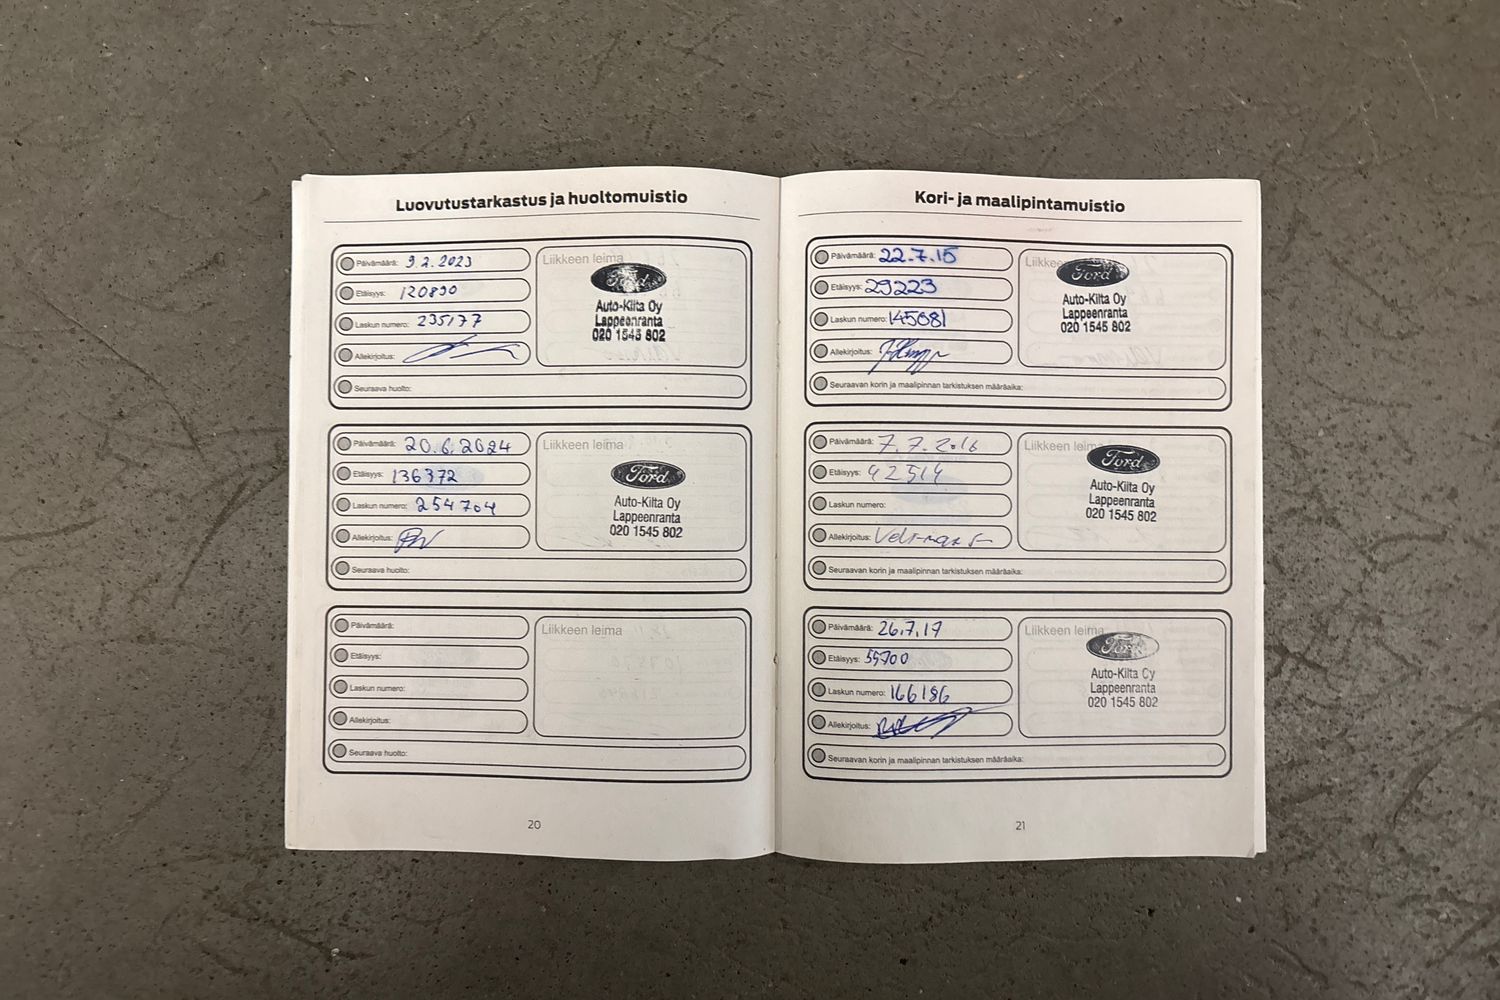 Luovutustarkastus ja huoltomuistio
Päivämäärä: 9.2.2023
Etäisyys: 120890
Laskun numero: 235177
Allekirjoitus:
Seuraava huolto:
Liikkeen leima
Ford
Auto-Kilta Oy
Lappeenranta
020 1545 802
Päivämäärä: 20.6.2024
Etäisyys: 136372
Laskun numero: 254704
Allekirjoitus:
Seuraava huolto:
Liikkeen leima
Ford
Auto-Kilta Oy
Lappeenranta
020 1545 802
Päivämäärä:
Etäisyys:
Laskun numero:
Allekirjoitus:
Seuraava huolto:
Liikkeen leima
20
Kori- ja maalipintamuistio
Päivämäärä: 22.7.15
Etäisyys: 29223
Laskun numero: 145081
Allekirjoitus:
Seuraavan korin ja maalipinnan tarkistuksen määräaika:
Liikkeen
Ford
Auto-Kilta Oy
Lappeenranta
020 1545 802
Päivämäärä: 7.7.2016
Etäisyys: 42514
Laskun numero:
Allekirjoitus:
Seuraavan korin ja maalipinnan tarkistuksen määräaika:
Liikkeen leima
Ford
Auto-Kilta Oy
Lappeenranta
020 1545 802
Päivämäärä: 26.7.17
Etäisyys: 55700
Laskun numero: 166186
Allekirjoitus:
Seuraavan korin ja maalipinnan tarkistuksen määräaika:
Liikkeen leima
Ford
Auto-Kilta Oy
Lappeenranta
020 1545 802
21